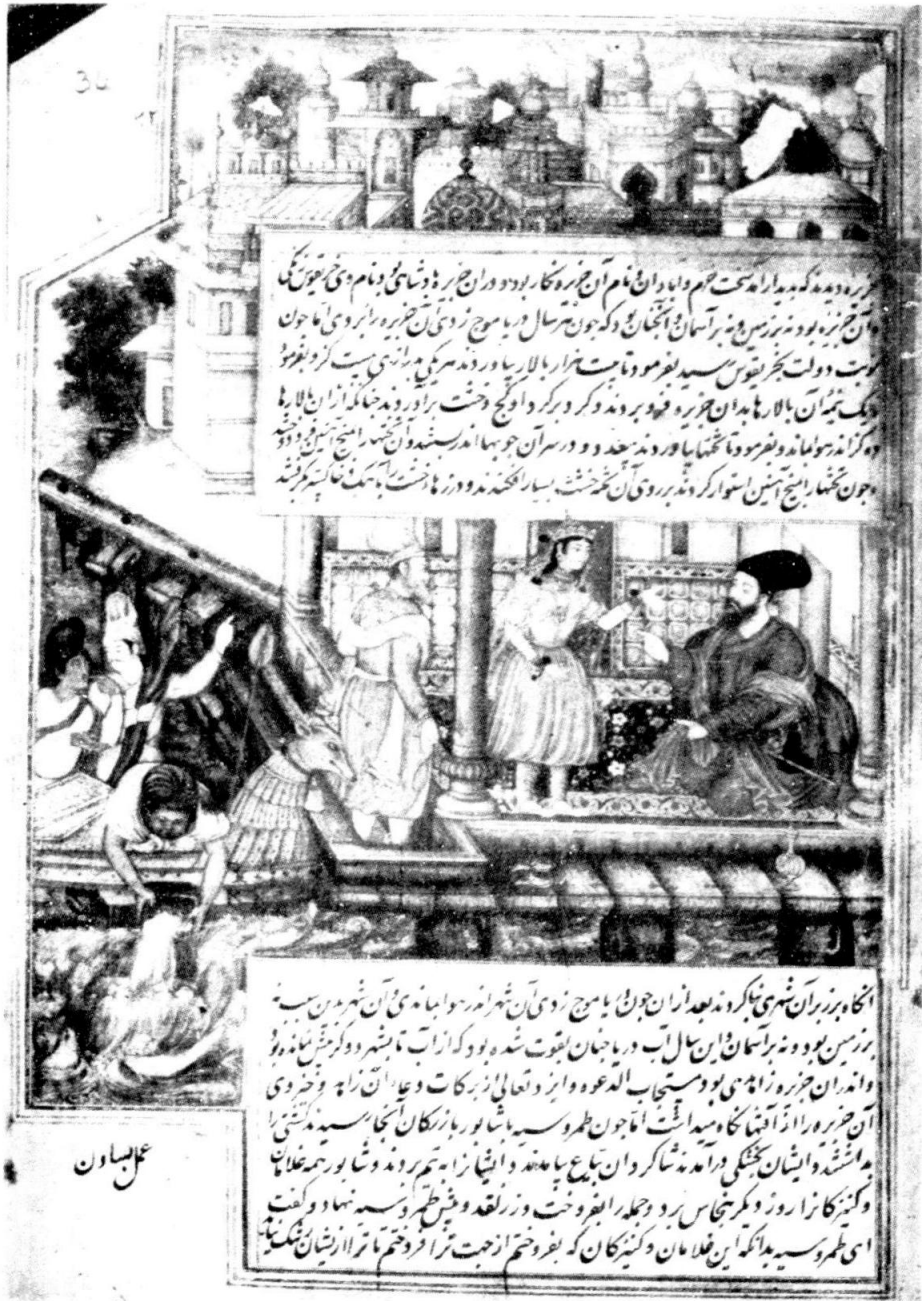 34
جزیره دیدند که پدیدار آمد سخت خرم و آبادان و نام آن جزیره نکار بود و در آن جزیرها دشاهی بود نام وی خریقوس کی
آن جزیره بود نه بر زمین و نه بر آسمان و آنچنان بود که چون هر سال دریا موج زدی آن جزیره را ببردی اما چون
نوبت دولت بخریقوس رسید بفرمود تا بیست هزار بالار بیاوردند هر یکی بدرازی شست گز و بفرمود
تا یک نیمهٔ آن بالارها بدان جزیره فرو بردند و گرد بر گرد او گچ و خشت برآوردند چنانکه از آن بالارها
ده گز اندر هوا ماند و بفرمود تا تختها بیاوردند و در سر آن چوبها اندر بستند و آن تختها را بمیخ آهنین
و چون تختها را بمیخ آهنین استوار کردند بر روی آن تخته خشت بسیار افکندند و درزها خشت را بآهک و خاکستر
آنگاه بر زبر آن شهری بنا کردند بعد از آن چون دریا موج زدی آن شهر اندر هوا ماندی و آن شهر بدین سبب نه
بر زمین بود و نه بر آسمان و این سال آب دریا چنان بقوت شده بود که از آب تا بشهر دو گز بیش نمانده بود
و اندران جزیره زاهدی بود مستجاب الدعوه و ایزد تعالی از برکات دعاء آن زاهد
آن جزیره را از آفتها نگاه میداشت اما چون طمروسیه با شاپور بازرگان آنجا رسیدند کشتی را
بداشتند و ایشان بخشکی درآمدند شاگردان بیاع بیامدند و ایشانرا به تیم بردند و شاپور همه غلامان
و کنیزکانرا روز دیگر بنخاس برد و جمله را بفروخت و زر نقد و پیش طمروسیه نهاد و گفت
ای طمروسیه بدانکه این غلامان و کنیزکان که بفروختم از جهت ترا فروختم تا ترا از ایشان
عمل بساون